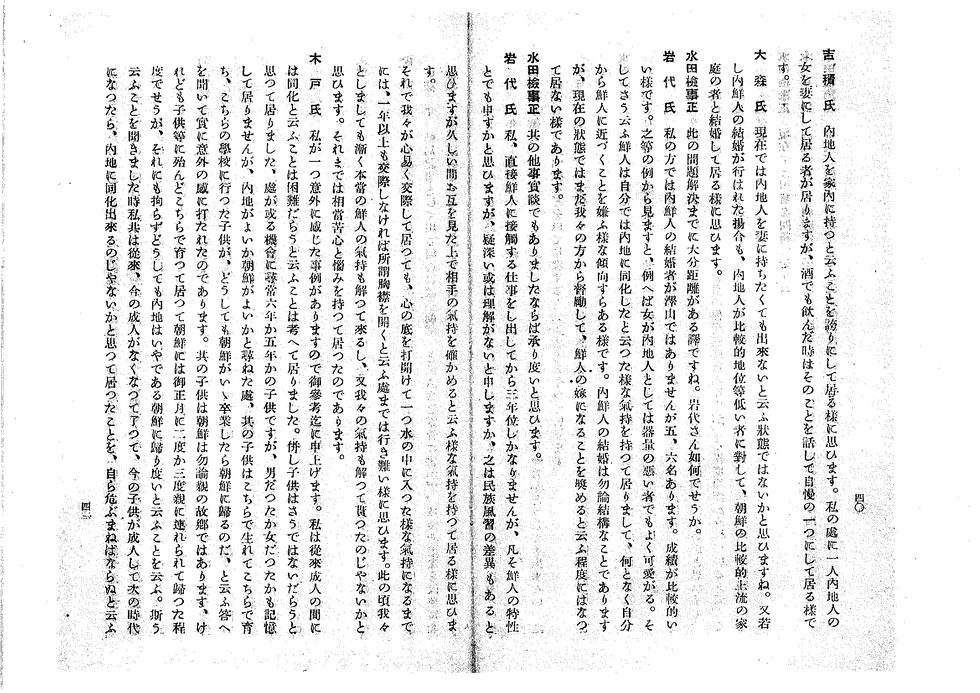 吉積氏 內地人を家內に持つと云ふことを誇りにして居る樣に思ひます。私の處に一人內地人の
女を妻にして居る者が居りますが、酒でも飮んだ時はそのことを話して自慢の一つにして居る樣で
す。
大森氏 現在では內地人を妻に持ちたくても出來ないと云ふ狀態ではないかと思ひますね。又若
し內鮮人の結婚が行はれた場合も、內地人が比較的地位等低い者に對して、朝鮮の比較的上流の家
庭の者と結婚して居る樣に思ひます。
水田檢事正 此の問題解決までに大分距離がある譯ですね。岩代さん如何でせうか。
岩代氏 私の方では內鮮人の結婚者が澤山ではありませんが五、六名あります。成績が比較的い
い樣です。之等の例から見ますと、例へば女が內地人としては器量の惡い者でもよく可愛がる。そ
してさう云ふ鮮人は自分では內地に同化したと云つた樣な氣持を持つて居りまして、何となく自分
から鮮人に近づくことを嫌ふ樣な傾向すらある樣です。內鮮人の結婚は勿論結構なことであります
が、現在の狀態ではまだ我々の方から督勵して、鮮人の嫁になることを奬めると云ふ程度にはなつ
て居ない樣であります。
四〇
水田檢事正 其の他事實談でもありましたならば承り度いと思ひます。
岩代氏 私、直接鮮人に接觸する仕事をし出してから三年位しかなりませんが、凡そ鮮人の特性
とでも申すかと思ひますが、疑深い或は理解がないと申しますか、之は民族風習の差異もあると
思ひますが久しい間お互を見た上で相手の氣持を確かめると云ふ樣な氣持を持つて居る樣に思ひま
す。
それで我々が心易く交際して居つても、心の底を打開けて一つ水の中に入つた樣な氣持になるまで
には、一年以上も交際しなければ所謂胸襟を開くと云ふ處までは行き難い樣に思ひます。此の頃我々
としましても漸く本當の鮮人の氣持も解つて來るし、又我々の氣持も解つて貰つたのじやないかと
思ひます。それまでは相當苦心と惱みを持つて居つたのであります。
木戶氏 私が一つ意外に感じた事例がありますので御參考迄に申上げます。私は從來成人の間に
は同化と云ふことは困難だらうと云ふことは考へて居りました。併し子供はさうではないだらうと
思つて居りました。處が或る機會に尋常六年か五年かの子供ですが、男だつたか女だつたかも記憶
して居りませんが、內地がよいか朝鮮がよいかと尋ねた處、其の子供はこちらで生れてこちらで育
ち、こちらの學校に行つた子供が、どうしても朝鮮がいゝ卒業したら朝鮮に歸るのだ、と云ふ答へ
を聞いて實に意外の感に打たれたのであります。其の子供は朝鮮は勿論親の故鄕ではあります、け
れども子供等に殆んどこちらで育つて居つて朝鮮には御正月に二度か三度親に連れられて歸つた程
度でせうが、それにも拘らずどうしても內地はいやである朝鮮に歸り度いと云ふことを云ふ。斯う
云ふことを聞きました時私共は從來、今の成人がなくなつて了つて、今の子供が成人して次の時代
になつたら、內地に同化出來るのじやないかと思つて居つたことを、自ら危ぶまねばならぬと云ふ
四一